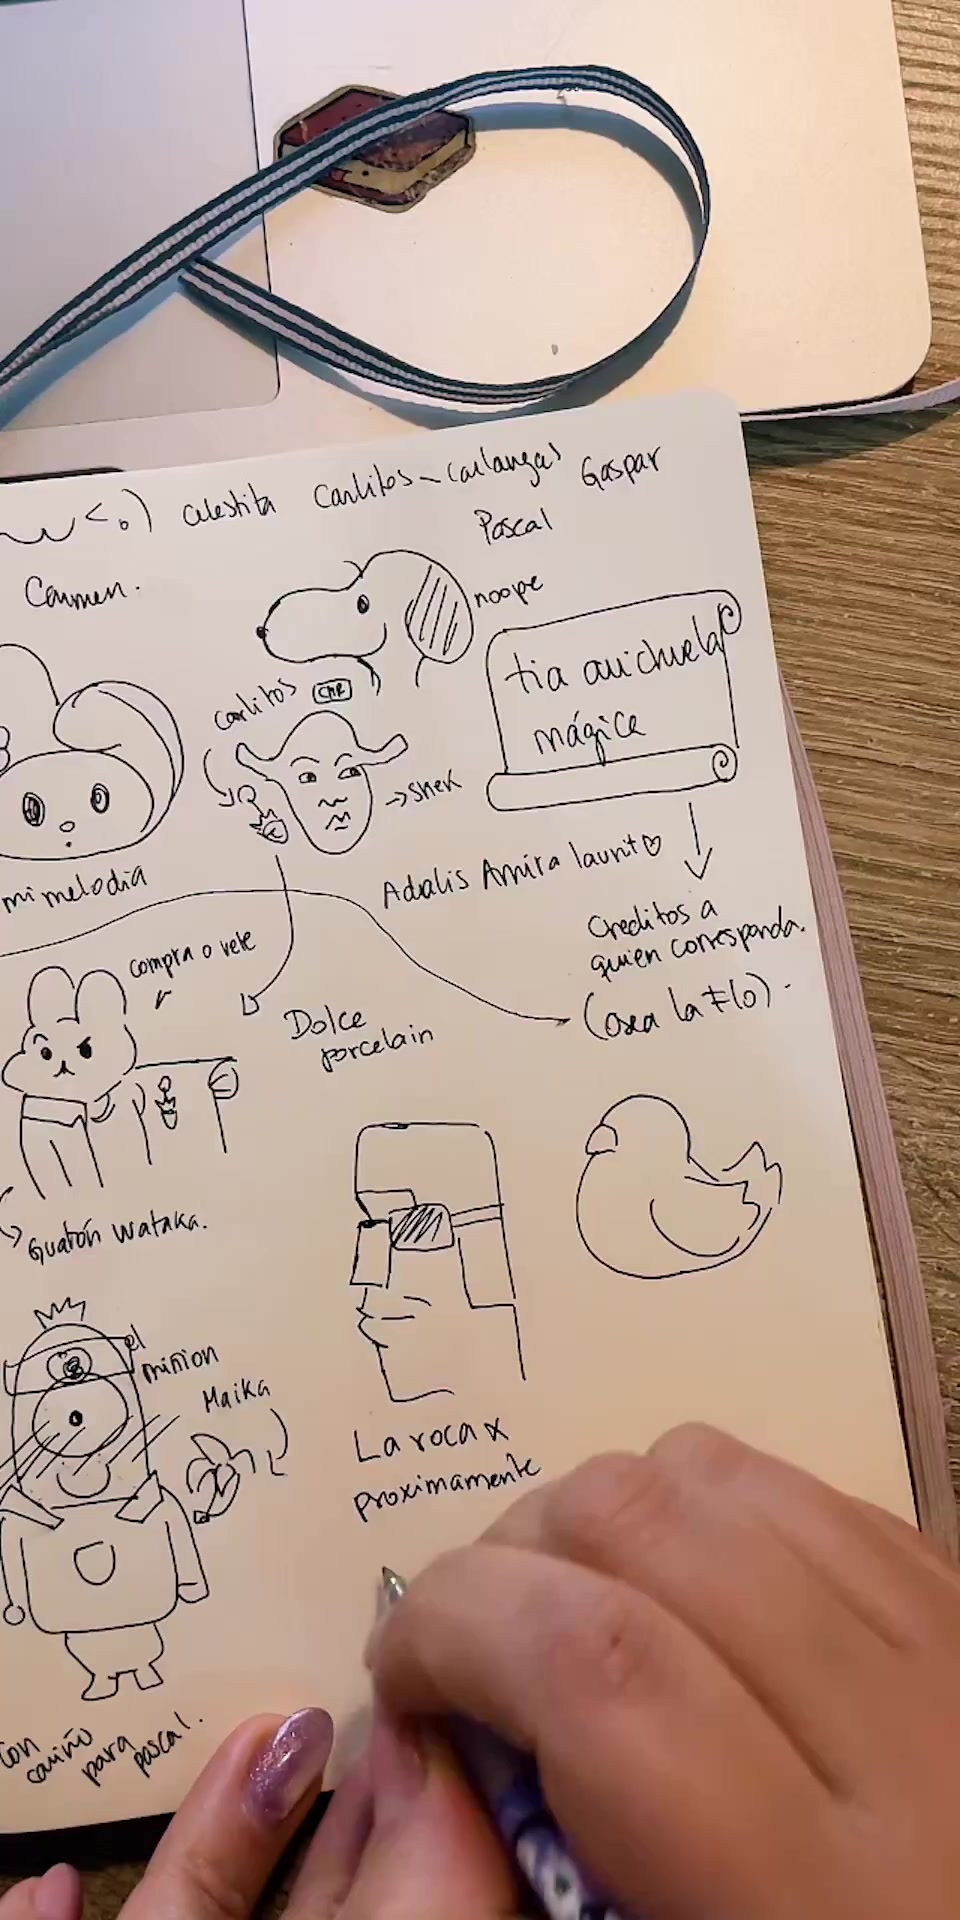 celestita Carlitos - Carlangas Gaspar
Pascal
Carmen.
noope
carlitos
tia auichuela
mágica
→ shek
mi melodia
Adalis Amira laurito
Creditos a
quien corresponda.
(osea la Flo).
compra o vete
Dolce
porcelain
Guatón Wataka.
el
minion
Maika
La roca x
proximamente
con
cariño
para
pascal.